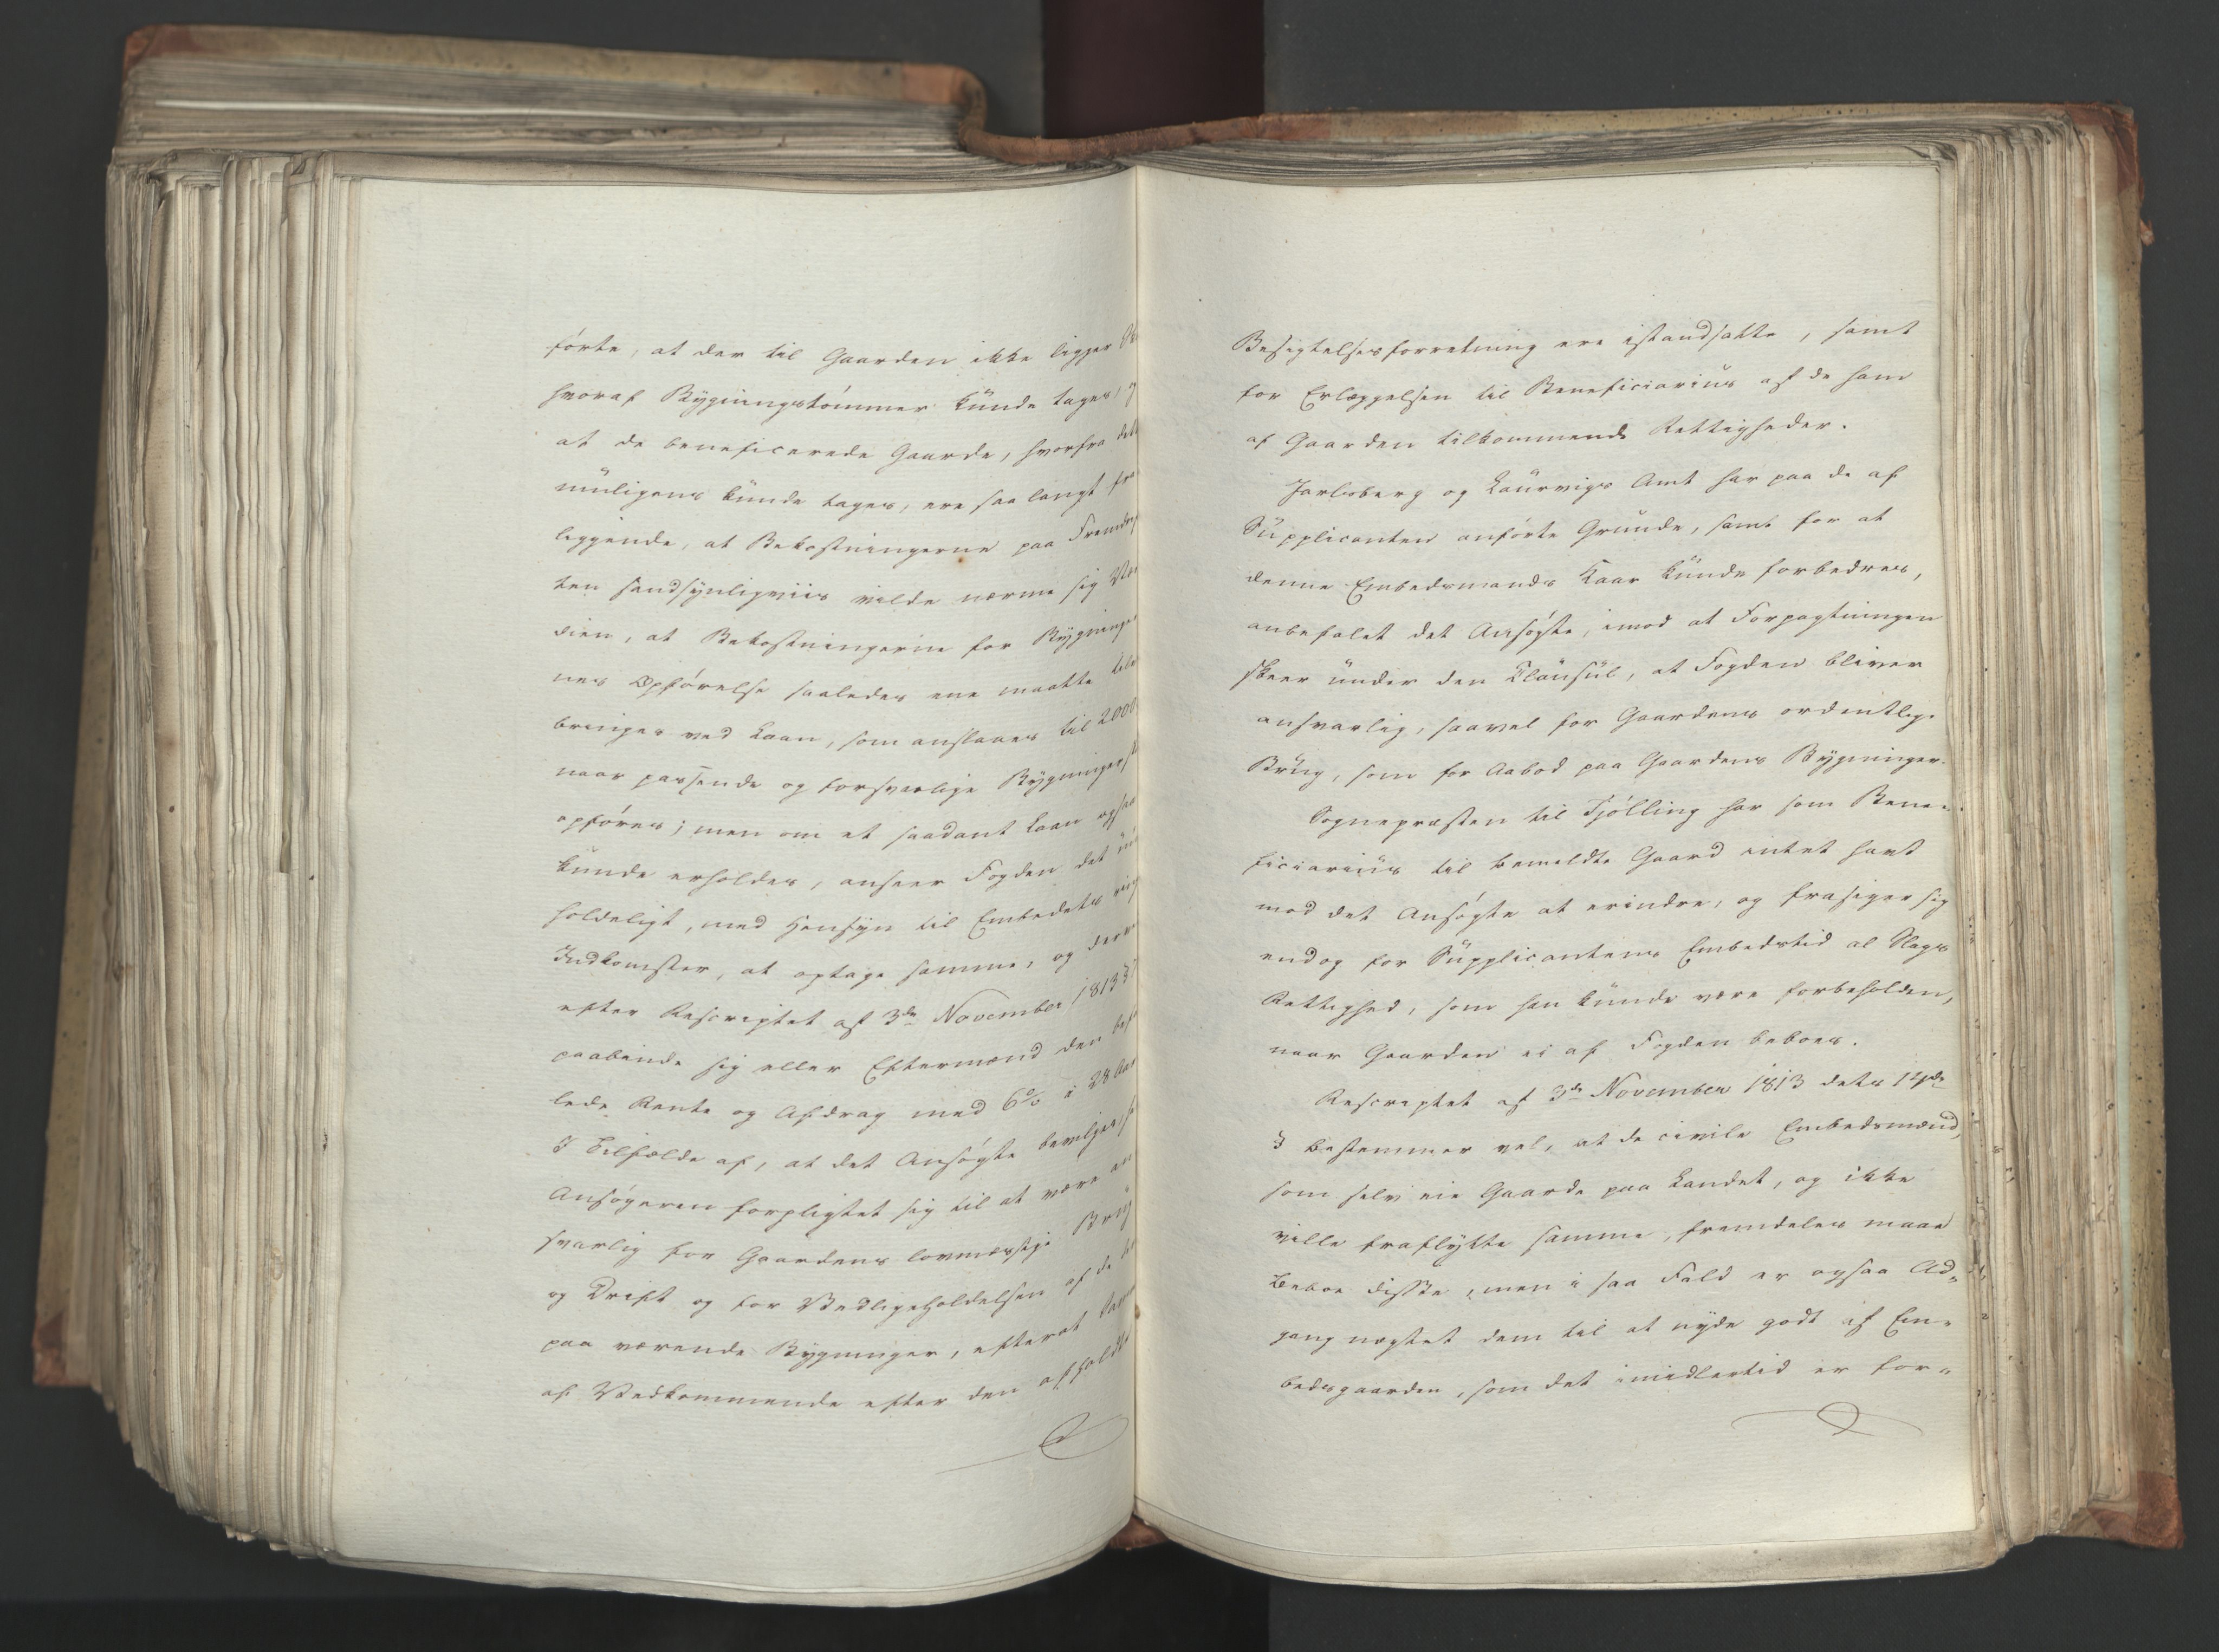 førte, at der til Gaarden ikke ligger
hvoraf Bygningstømmer kunde tages,
at de beneficerede Gaarde, hvorfra
muligens kunde tages, ere saa langt fra
liggende, at Bekostningerne paa
ten sandsynligviis vilde nærme sig
dien, at Bekostningerne for Bygninger
nes Opførelse saaledes ene maatte
bringes ved Laan, som anslaaes til 2000
naar passende og forsvarlige Bygninger
opføres; men om et saadant Laan ogsaa
kunde erholdes, anseer Fogden det
holdeligt, med Hensyn til Embedets
Indkomster, at optage samme, og
efter Rescriptet af 3de November 1813
paabinde sig eller Eftermænd den
lede Rente og Afdrag med 6 % i 28 Aar
I Tilfælde af, at det Ansøgte bevilges,
Ansøgeren forpligtet sig til at være an
svarlig for Gaardens lovmæssige Brug
og Drift og for Vedligeholdelsen af de
paa værende Bygninger, efterat
af Vedkommende efter den afholdte
Besigtelsesforretning ere istandsatte, samt
for Erlæggelsen til Beneficiarius af de ham
af Gaarden tilkommende Rettigheder.
Jarlsberg og Laurvigs Amt har paa de af
Supplicanten anførte Grunde, samt for at
denne Embedsmands Kaar kunde forbedres,
anbefalet det Ansøgte, imod at Forpagtningen
skeer under den Clausul, at Fogden bliver
ansvarlig, saavel for Gaardens ordentlige
Brug, som for Aabod paa Gaardens Bygninger.
Sognepræsten til Tjølling har som Bene-
ficiarius til bemeldte Gaard intet havt
mod det Ansøgte at erindre, og frasiger sig
endog for Supplicantens Embedstid al Slags
Rettighed, som han kunde være forbeholden,
naar Gaarden ei af Fogden beboes.
Rescriptet af 3de November 1813 dets 14de
§ bestemmer vel, at de civile Embedsmænd,
som selv eie Gaarde paa Landet, og ikke
ville fraflytte samme, fremdeles maae
beboe disse, men i saa Fald er ogsaa Ad-
gang nægtet dem til at nyde godt af Em-
bedsgaarden, som det imidlertid er for-